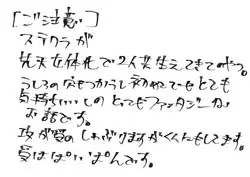 [ご注意]
ステクラが
先天女体化で2人共生えてきてのやつ。
うしろの穴をつかうし初めてでもとても
気持ちいいしの とってもファンタジーな
お話です。
攻が受の しゃぶりますがくんにもします。
受はぱいぱんです。